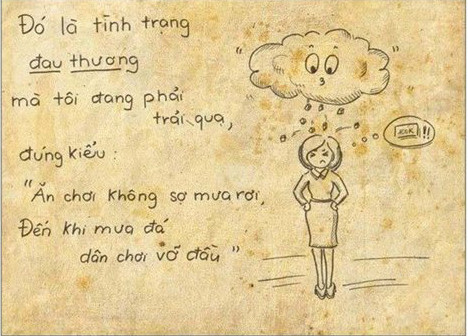 Đó là tình trạng
đau thương
mà tôi đang phải
trải qua,
đúng kiểu :
"Ăn chơi không sợ mưa rơi,
Đến khi mưa đá
dân chơi vỡ đầu"
KCK !!